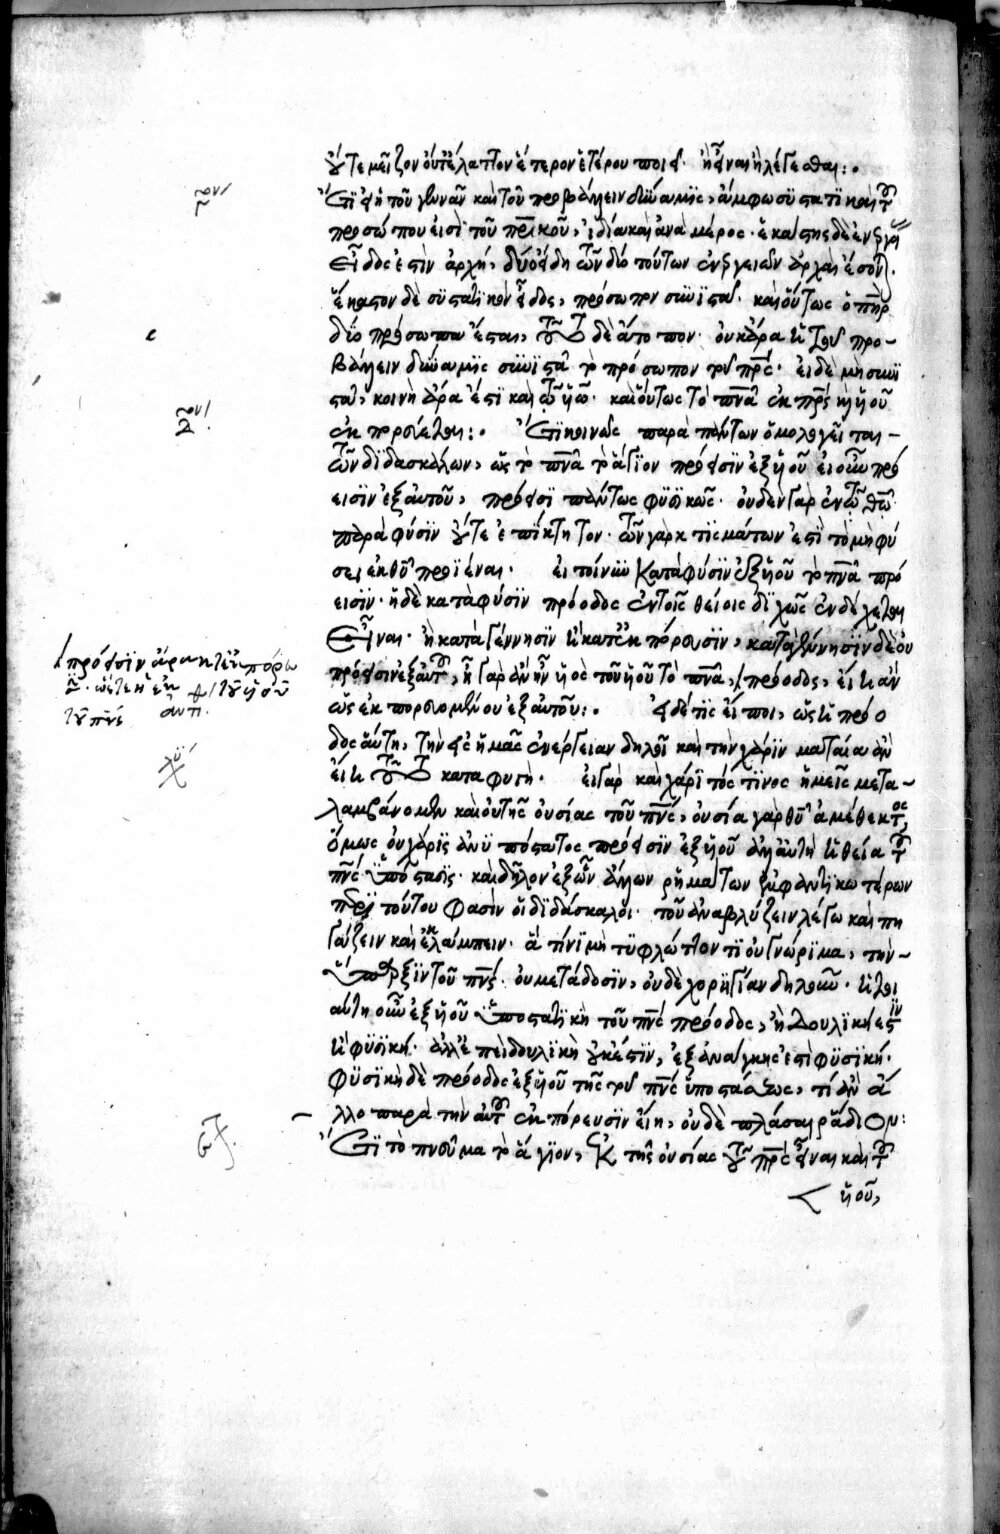 οὔτε μεῖζον οὔτ' ἔλαττον ἕτερον ἑτέρου ποιεῖ ἢ εἶναι ἢ λέγεσθαι:
Ἔτι εἰ ἡ τοῦ γεννᾶν καὶ τοῦ προβάλλειν δύναμις, ἄμφω συστατικαὶ τοῦ
προσώπου εἰσὶ τοῦ πρικοῦ, ἰδίᾳ καὶ ἀνὰ μέρος· ἑκάστης δὲ ἐνεργεί
εἶδος ἐστὶν ἀρχή, δύο εἴδη τῶν δύο τούτων ἐνεργειῶν ἀρχαὶ ἔσονται.
ἕκαστον δὲ συστατικὸν εἶδος, πρόσωπον συνιστᾷ· καὶ οὕτως ὁ πηρ
δύο πρόσωπα ἔσται, τοῦτο δὲ ἄτοπον· οὐκ ἄρα ἡ τοῦ προ-
βάλλειν δύναμις συνιστᾷ τὸ πρόσωπον τοῦ πρς· εἰ δὲ μὴ συνι
στᾷ, κοινὴ ἄρα ἐστὶ καὶ τῷ υἱῷ· καὶ οὕτως τὸ πνα ἐκ πρς καὶ υἱοῦ
ἐκπορεύεται:· Ἔτι κοινῶς παρὰ πάντων ὁμολογεῖται
τῶν διδασκάλων, ὡς τὸ πνα τὸ ἅγιον πρόεισιν ἐξ υἱοῦ· εἰ οὖν πρό
εισιν ἐξ αὐτοῦ, πρόεισι πάντως φυσικῶς· οὐδὲν γὰρ ἐν τῷ θῶ
παρὰ φύσιν οὔτε ἐπίκτητον· τῶν γὰρ κτισμάτων ἐστὶ τὸ μὴ φύ
σει ἐκ θῦ προϊέναι· εἰ τοίνυν κατὰ φύσιν ἐξ υἱοῦ τὸ πνα πρό
εισιν· ἡ δὲ κατὰ φύσιν πρόοδος ἐν τοῖς θείοις διχῶς ἐνδέχεται
εἶναι· ἢ κατὰ γέννησιν ἢ κατ' ἐκπόρευσιν, κατὰ γέννησιν δὲ οὐ
πρόεισιν ἐξ αὐτοῦ, ἦ γὰρ ἂν ἦν υἱὸς τοῦ υἱοῦ τὸ πνα, πρόοδος, εἴη ἂν
ὡς ἐκπορευομένου ἐξ αὐτοῦ:· εἰ δέ τις εἴποι, ὡς ἡ πρόο
δος αὕτη, τὴν εἰς ἡμᾶς ἐνέργειαν δηλοῖ καὶ τὴν χάριν ματαία ἂν
εἴη τοῦτο καταφυγή· εἰ γὰρ καὶ χάριτός τινος ἡμεῖς μετα-
λαμβάνομεν καὶ οὐ τῆς οὐσίας τοῦ πνς, οὐσία γὰρ θῦ ἀμέθεκτος,
ὅμως οὐ χάρις ἀνυπόστατος πρόεισιν ἐξ υἱοῦ ἀλλ' αὐτὴ ἡ θεία τοῦ
πνς ὑπόστασις· καὶ δῆλον ἐξ ὧν ἄλλων ῥημάτων ἐμφαντικωτέρων
περὶ τούτου φασὶν οἱ διδάσκαλοι· τοῦ ἀναβλύζειν λέγω καὶ πη
γάζειν καὶ ἐκλάμπειν· ἅ τινι μὴ τυφλώττοντι οὐ γνώριμα, τὴν-
ὕπαρξιν τοῦ πνς· οὐ μετάδοσιν, οὐδὲ χορηγίαν δηλοῦν·
αὕτη οὖν ἐξ υἱοῦ ὑποστατικὴ τοῦ πνς πρόοδος, ἢ δουλική ἐστιν
ἢ φυσική· ἀλλ' ἐπεὶ δουλικὴ οὐκ ἔστιν, ἐξ ἀνάγκης ἐστὶ φυσική·
φυσικὴ δὲ πρόοδος ἐξ υἱοῦ τῆς τοῦ πνς ὑποστάσεως, τί ἂν ἄ
λλο παρὰ τὴν αὐτοῦ ἐκπόρευσιν εἴη, οὐδὲ πλάσαι ῥᾴδιον:
Ἔτι τὸ πνεῦμα τὸ ἅγιον, ἐκ τῆς οὐσίας τοῦ πρς εἶναι καὶ τοῦ
υἱοῦ,